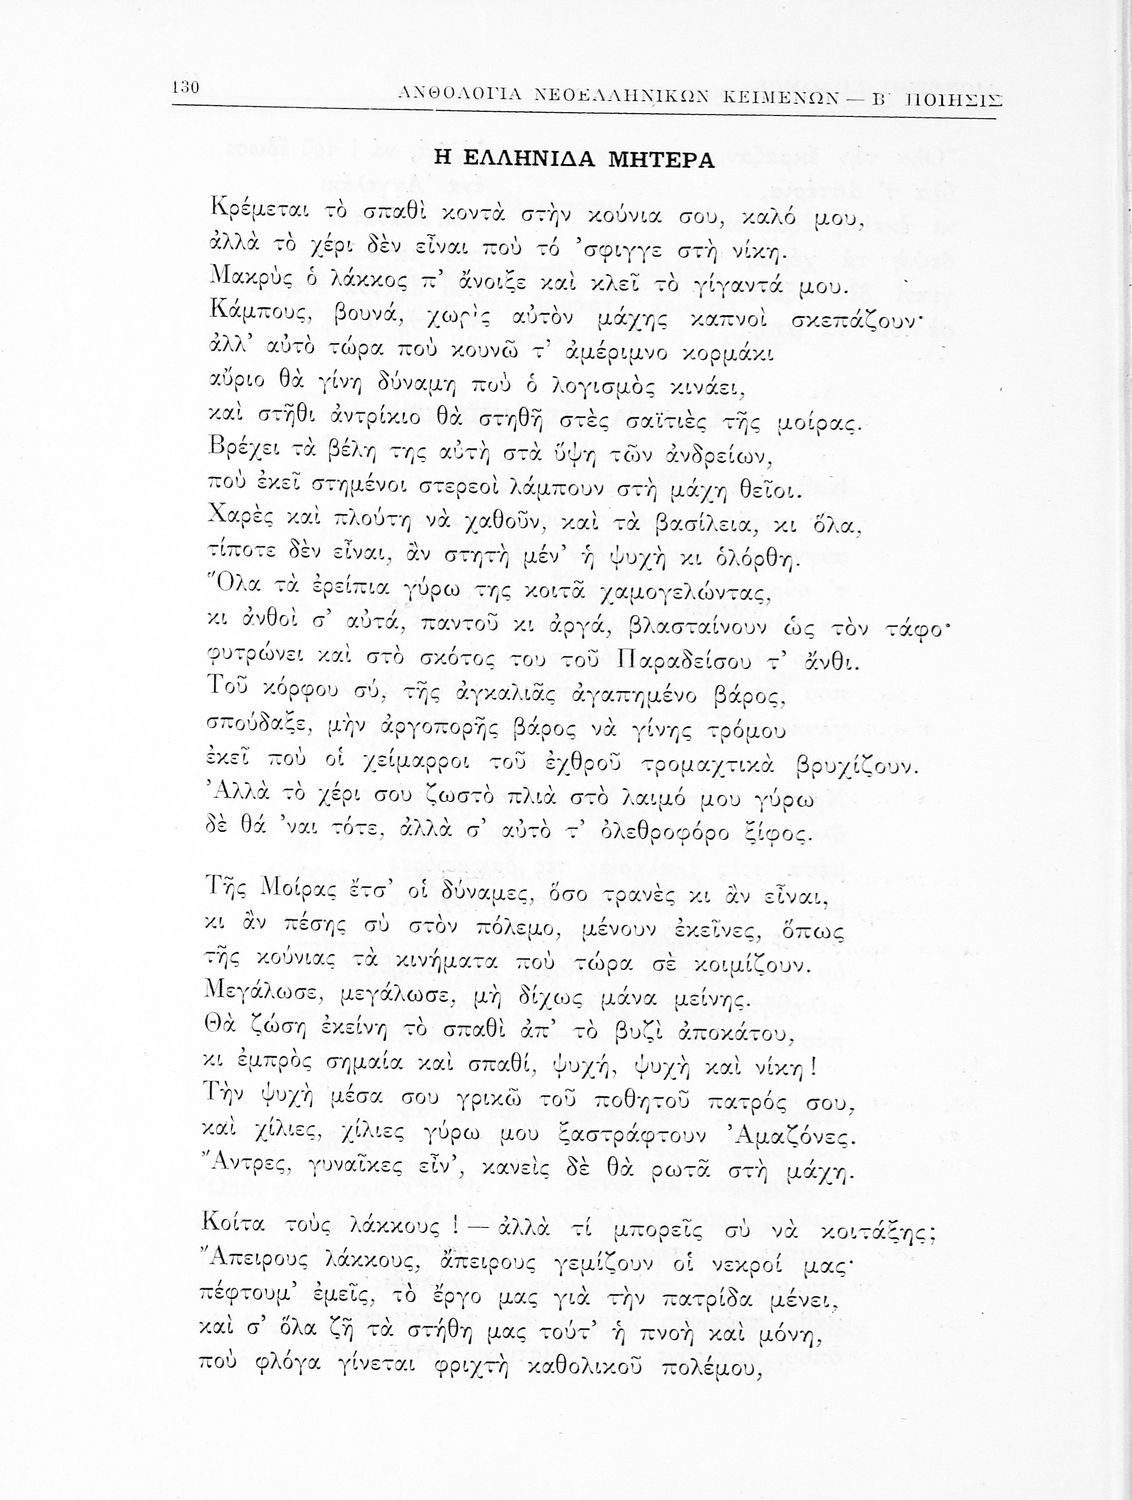 130
ΑΝΘΟΛΟΓΙΑ ΝΕΟΕΛΛΗΝΙΚΩΝ ΚΕΙΜΕΝΩΝ — Β΄ ΠΟΙΗΣΙΣ
Η ΕΛΛΗΝΙΔΑ ΜΗΤΕΡΑ
Κρέμεται τὸ σπαθὶ κοντὰ στὴν κούνια σου, καλό μου,
ἀλλὰ τὸ χέρι δὲν εἶναι ποὺ τό ’σφιγγε στὴ νίκη.
Μακρὺς ὁ λάκκος π’ ἄνοιξε καὶ κλεῖ τὸ γίγαντά μου.
Κάμπους, βουνά, χωρὶς αὐτὸν μάχης καπνοὶ σκεπάζουν·
ἀλλ’ αὐτὸ τώρα ποὺ κουνῶ τ’ ἀμέριμνο κορμάκι
αὔριο θὰ γίνη δύναμη ποὺ ὁ λογισμὸς κινάει,
καὶ στῆθι ἀντρίκιο θὰ στηθῆ στὲς σαϊτιὲς τῆς μοίρας.
Βρέχει τὰ βέλη της αὐτὴ στὰ ὕψη τῶν ἀνδρείων,
ποὺ ἐκεῖ στημένοι στερεοὶ λάμπουν στὴ μάχη θεῖοι.
Χαρὲς καὶ πλούτη νὰ χαθοῦν, καὶ τὰ βασίλεια, κι ὅλα,
τίποτε δὲν εἶναι, ἂν στητὴ μέν’ ἡ ψυχὴ κι ὁλόρθη.
Ὅλα τὰ ἐρείπια γύρω της κοιτᾶ χαμογελώντας,
κι ἀνθοὶ σ’ αὐτά, παντοῦ κι ἀργά, βλασταίνουν ὡς τὸν τάφο·
φυτρώνει καὶ στὸ σκότος του τοῦ Παραδείσου τ’ ἄνθι.
Τοῦ κόρφου σύ, τῆς ἀγκαλιᾶς ἀγαπημένο βάρος,
σπούδαξε, μὴν ἀργοπορῆς βάρος νὰ γίνης τρόμου
ἐκεῖ ποὺ οἱ χείμαρροι τοῦ ἐχθροῦ τρομαχτικὰ βρυχίζουν.
Ἀλλὰ τὸ χέρι σου ζωστὸ πλιὰ στὸ λαιμό μου γύρω
δὲ θά ’ναι τότε, ἀλλὰ σ’ αὐτὸ τ’ ὀλεθροφόρο ξίφος.
Τῆς Μοίρας ἔτσ’ οἱ δύναμες, ὅσο τρανὲς κι ἂν εἶναι,
κι ἂν πέσης σὺ στὸν πόλεμο, μένουν ἐκεῖνες, ὅπως
τῆς κούνιας τὰ κινήματα ποὺ τώρα σὲ κοιμίζουν.
Μεγάλωσε, μεγάλωσε, μὴ δίχως μάνα μείνης.
Θὰ ζώση ἐκείνη τὸ σπαθὶ ἀπ’ τὸ βυζὶ ἀποκάτου,
κι ἐμπρὸς σημαία καὶ σπαθί, ψυχή, ψυχὴ καὶ νίκη!
Τὴν ψυχὴ μέσα σου γρικῶ τοῦ ποθητοῦ πατρός σου,
καὶ χίλιες, χίλιες γύρω μου ξαστράφτουν Ἀμαζόνες.
Ἄντρες, γυναῖκες εἶν’, κανεὶς δὲ θὰ ρωτᾶ στὴ μάχη.
Κοίτα τοὺς λάκκους! — ἀλλὰ τί μπορεῖς σὺ νὰ κοιτάξης;
Ἄπειρους λάκκους, ἄπειρους γεμίζουν οἱ νεκροί μας·
πέφτουμ’ ἐμεῖς, τὸ ἔργο μας γιὰ τὴν πατρίδα μένει,
καὶ σ’ ὅλα ζῆ τὰ στήθη μας τούτ’ ἡ πνοὴ καὶ μόνη,
ποὺ φλόγα γίνεται φριχτὴ καθολικοῦ πολέμου,